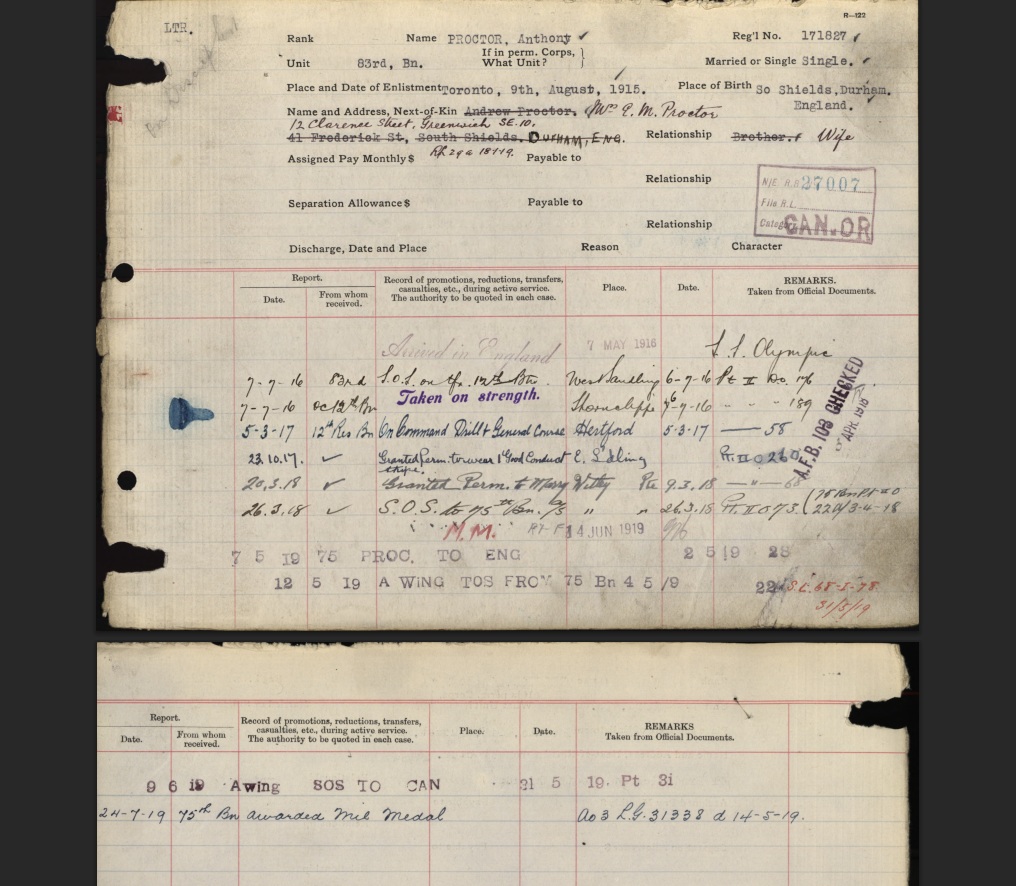 R—122
LTR.
Rank Name PROCTOR, Anthony Reg'l No. 171827
Unit 83rd, Bn. If in perm. Corps, What Unit? Married or Single Single.
Place and Date of Enlistment Toronto, 9th, August, 1915. Place of Birth So Shields, Durham.
England.
Name and Address, Next-of-Kin Andrew Proctor. Mrs E. M. Proctor
12 Clarence Street, Greenwich SE.10.
41 Frederick St, South Shields. DURHAM, ENG. Relationship Brother. Wife
Assigned Pay Monthly $ Payable to
Relationship
N/E. R.B 27007
File R.L.
Separation Allowance $ Payable to
Category CAN.OR
Relationship
Discharge, Date and Place Reason Character
Report. Record of promotions, reductions, transfers, casualties, etc., during active service. The authority to be quoted in each case. Place. Date. REMARKS. Taken from Official Documents.
Date. From whom received.
Arrived in England 7 MAY 1916 S.S. Olympic
7-7-16 83rd S.O.S. on tfr. 12th Bn. West Sandling 6-7-16 Pt II Do. 176
7-7-16 oc 12th Bn Taken on strength. Shorncliffe 7-7-16 - - - 189
5-3-17 12th Res Bn On Command Drill & General Course Hertford 5-3-17 —— 58
23.10.17. ✓ Granted Perm. to wear 1 Good Conduct stripe. E. S'dling Pt. II O 260
20.3.18 ✓ Granted Perm. to Marry Witley 9.3.18 —"— 68
26.3.18 ✓ S.O.S. to 75th Bn. O/S " " 26.3.18 Pt. II O 73. (75 Bn Pt II O 22 D/3-4-18
A.F.B. 103 CHECKED
APR. 1918
M.M. 14 JUN 1919
7 5 19 75 PROC. TO ENG 2 5 19 28
12 5 19 A WING TOS FROM 75 Bn 4 5 /9 22
31/5/19
Report. Record of promotions, reductions, transfers, casualties, etc., during active service. The authority to be quoted in each case. Place. Date. REMARKS Taken from Official Documents.
Date. From whom received.
9 6 19 A wing SOS TO CAN 31 5 19. Pt 31
24-7-19 75th Bn awarded Mil Medal Ao 3 L.G. 31338 d 14-5-19.